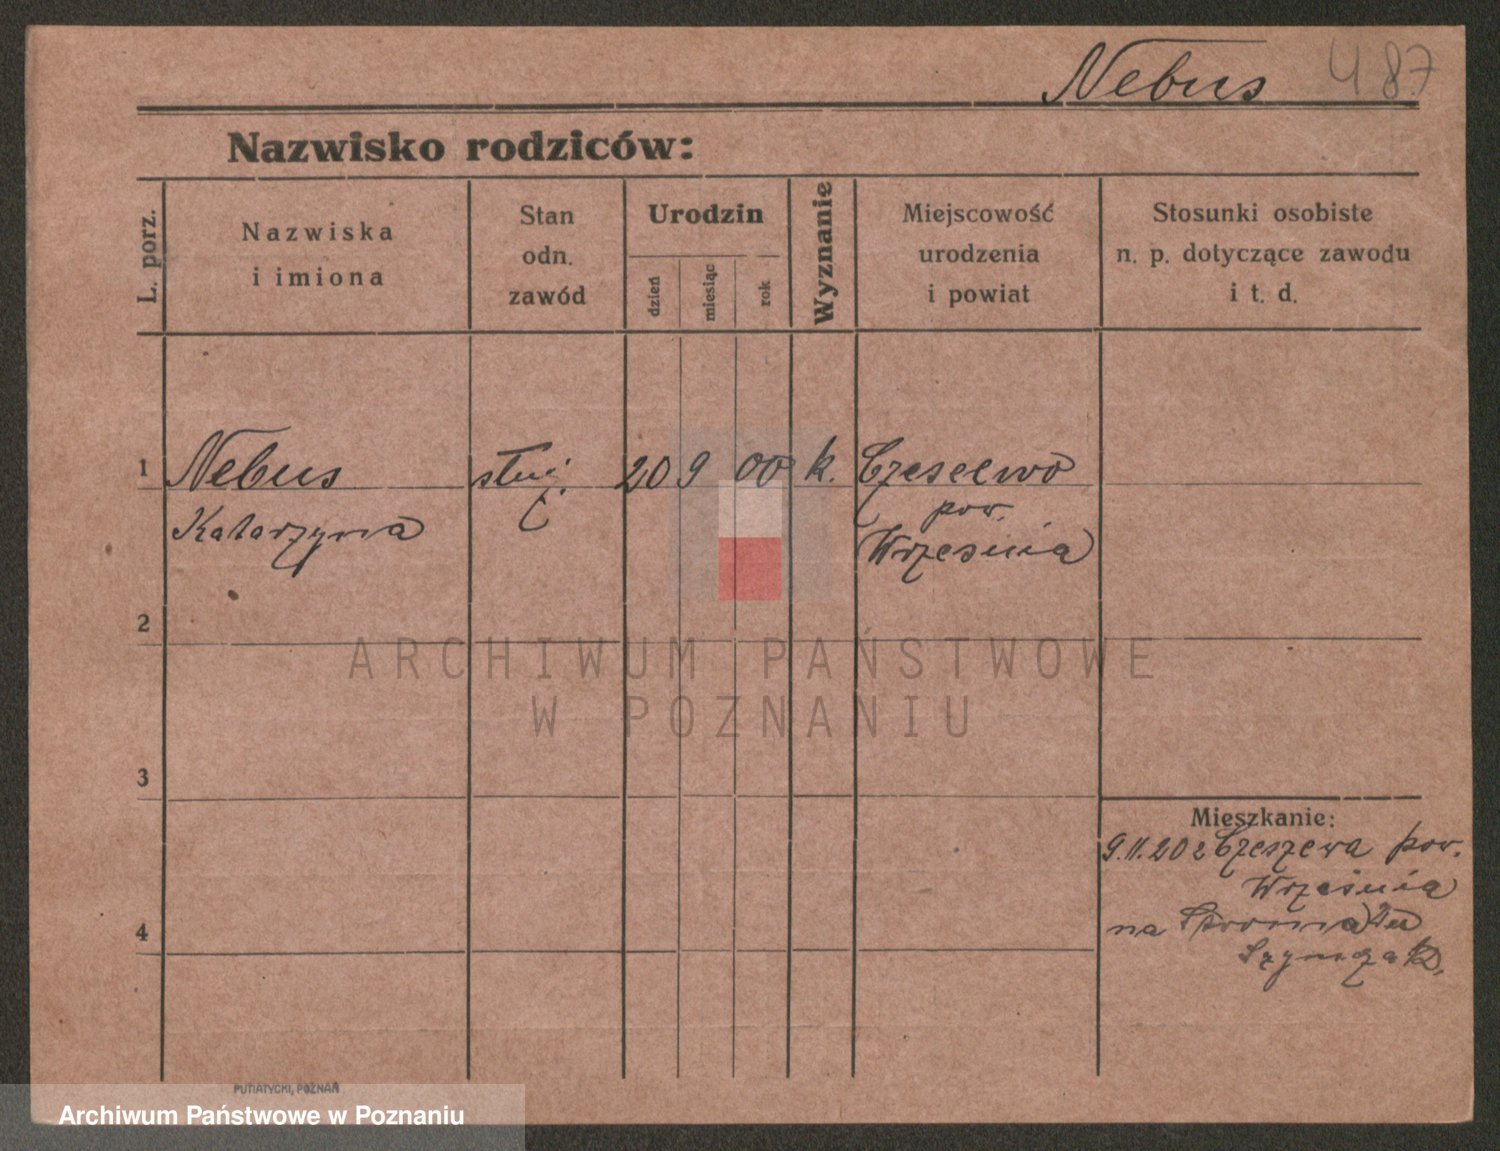 Nebus 487
Nazwisko rodziców:
L. porz.
Nazwiska
i imiona
Stan
odn.
zawód
Urodzin
dzień
miesiąc
rok
Wyznanie
Miejscowość
urodzenia
i powiat
Stosunki osobiste
n. p. dotyczące zawodu
i t. d.
1 Nebus służ. 20 9 00 k. Czesewo
pow.
Katarzyna Września
2
ARCHIWUM PAŃSTWOWE
W POZNANIU
3
Mieszkanie:
9.11.20 z Czeszewa pow.
Września
4
na
Szymczak.
PUTIATYCKI, POZNAŃ
Archiwum Państwowe w Poznaniu